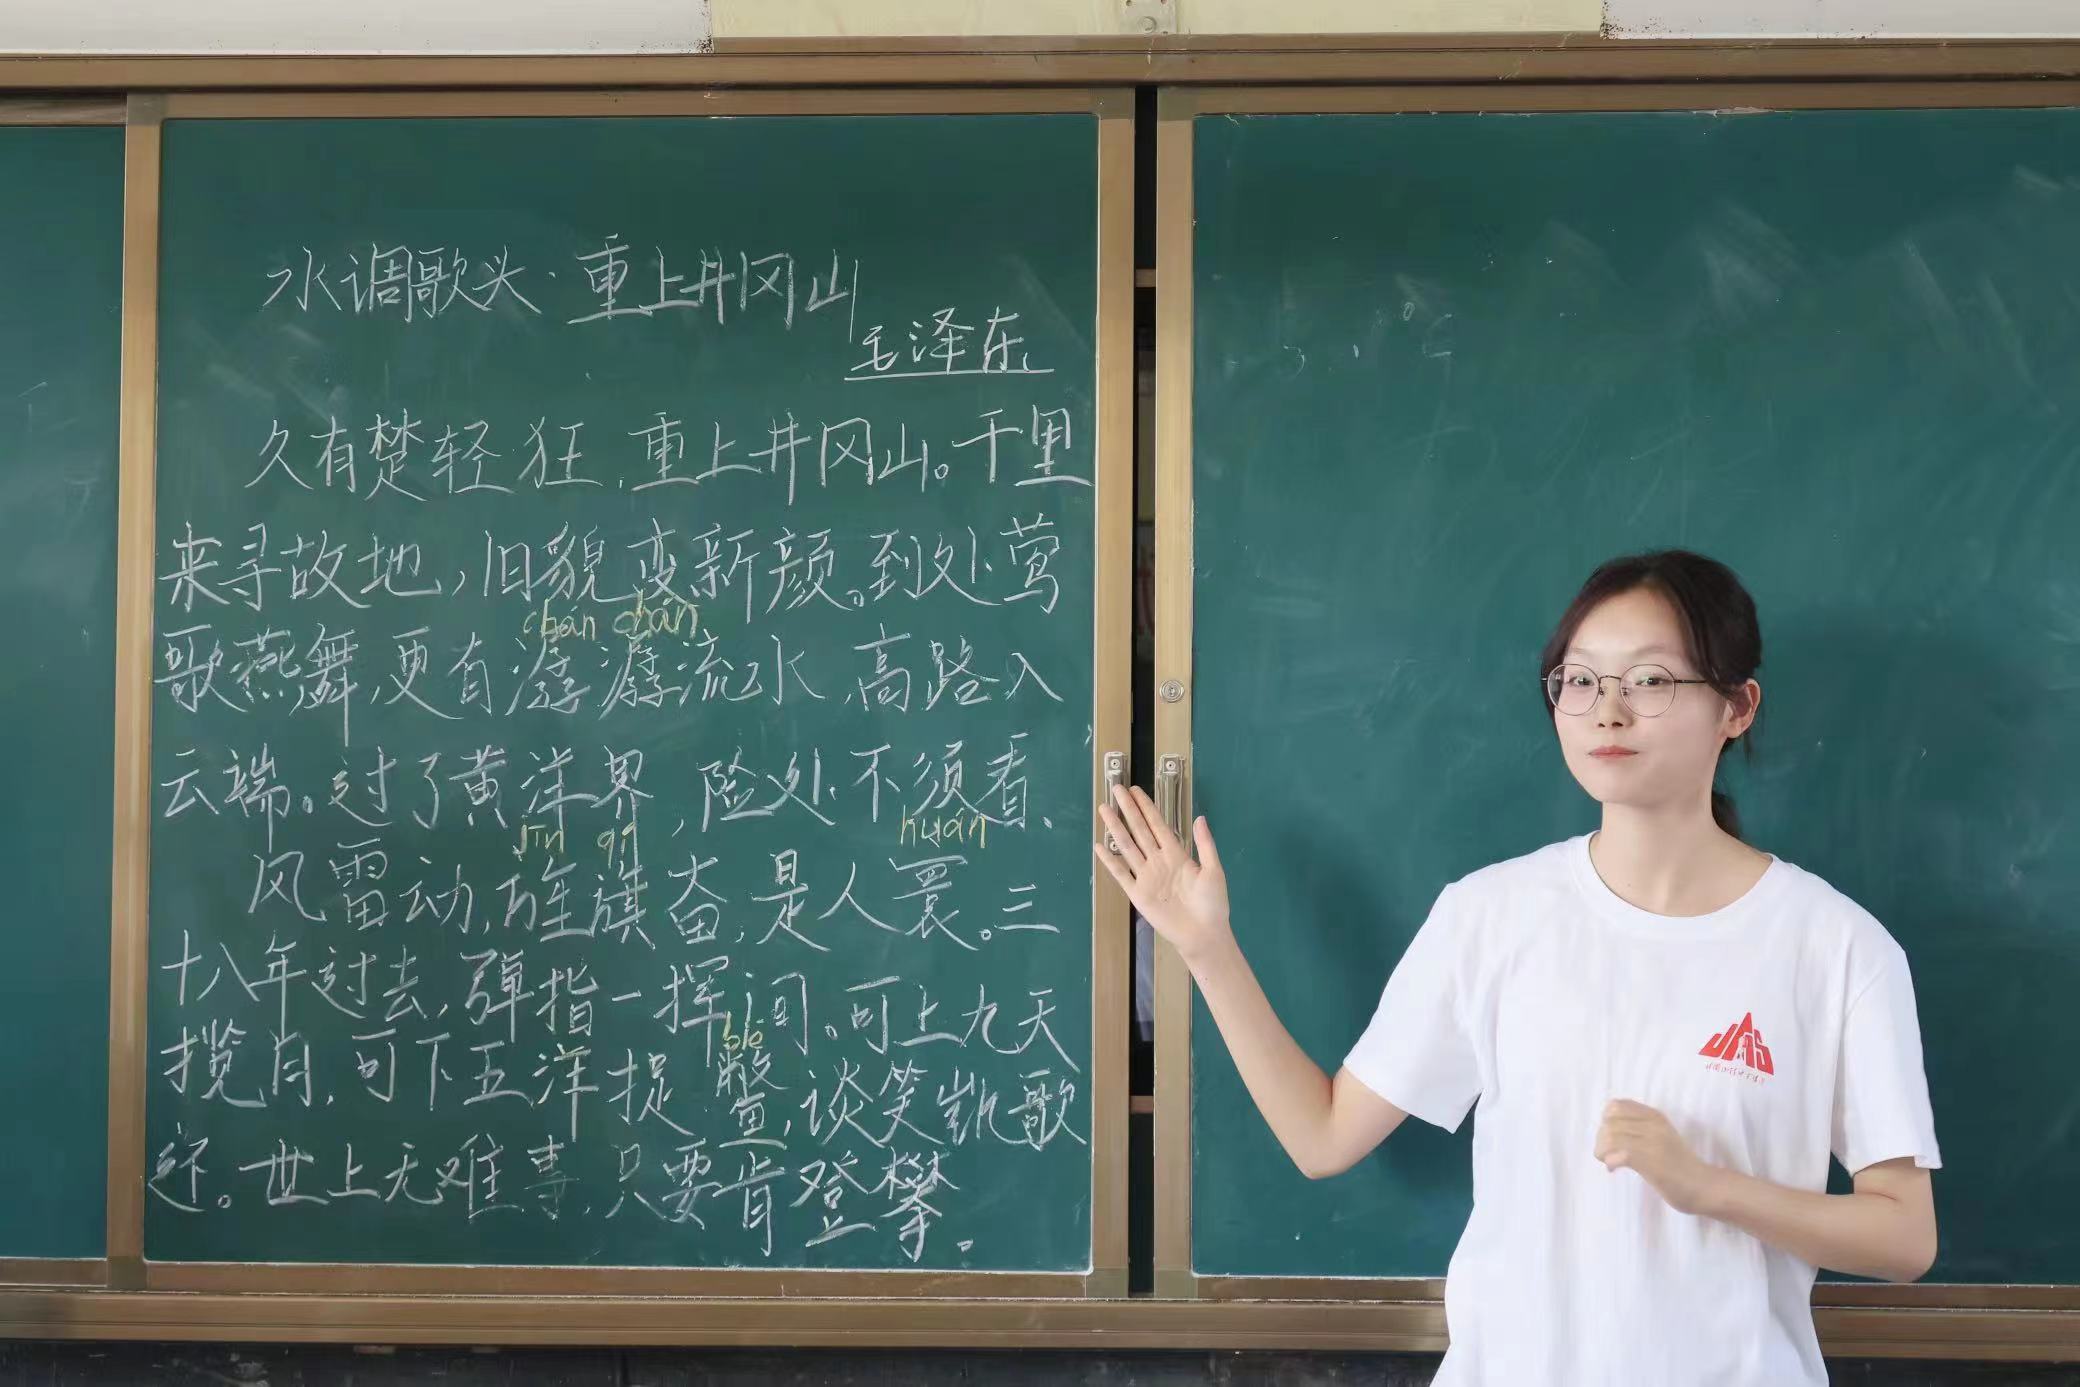 水调歌头·重上井冈山
毛泽东
久有楚轻狂,重上井冈山。千里
来寻故地,旧貌变新颜。到处莺
chán chán
歌燕舞,更有潺潺流水,高路入
云端。过了黄洋界,险处不须看、
jīng qí huán
风雷动,旌旗奋,是人寰。三
十八年过去,弹指一挥间。可上九天
biē
揽月,可下五洋捉鳖,谈笑凯歌
还。世上无难事,只要肯登攀。